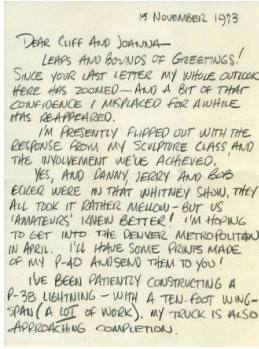 15 NOVEMBER 1973
DEAR CLIFF AND JOANNA—
LEAPS AND BOUNDS OF GREETINGS!
SINCE YOUR LAST LETTER MY WHOLE OUTLOOK
HERE HAS ZOOMED—AND A BIT OF THAT
CONFIDENCE I MISPLACED FOR AWHILE
HAS REAPPEARED.
I'M PRESENTLY FLIPPED OUT WITH THE
RESPONSE FROM MY SCULPTURE CLASS, AND
THE INVOLVEMENT WE'VE ACHIEVED.
YES, AND DANNY, JERRY AND BOB
ECKER WERE IN THAT WHITNEY SHOW, THEY
ALL TOOK IT RATHER MELLOW—BUT US
'AMATEURS' KNEW BETTER! I'M HOPING
TO GET INTO THE DENVER METROPOLITAN
IN APRIL. I'LL HAVE SOME PRINTS MADE
OF MY P-40 AND SEND THEM TO YOU!
I'VE BEEN PATIENTLY CONSTRUCTING A
P-38 LIGHTNING—WITH A TEN-FOOT WING-
SPAN (A LOT OF WORK). MY TRUCK IS ALSO
APPROACHING COMPLETION.